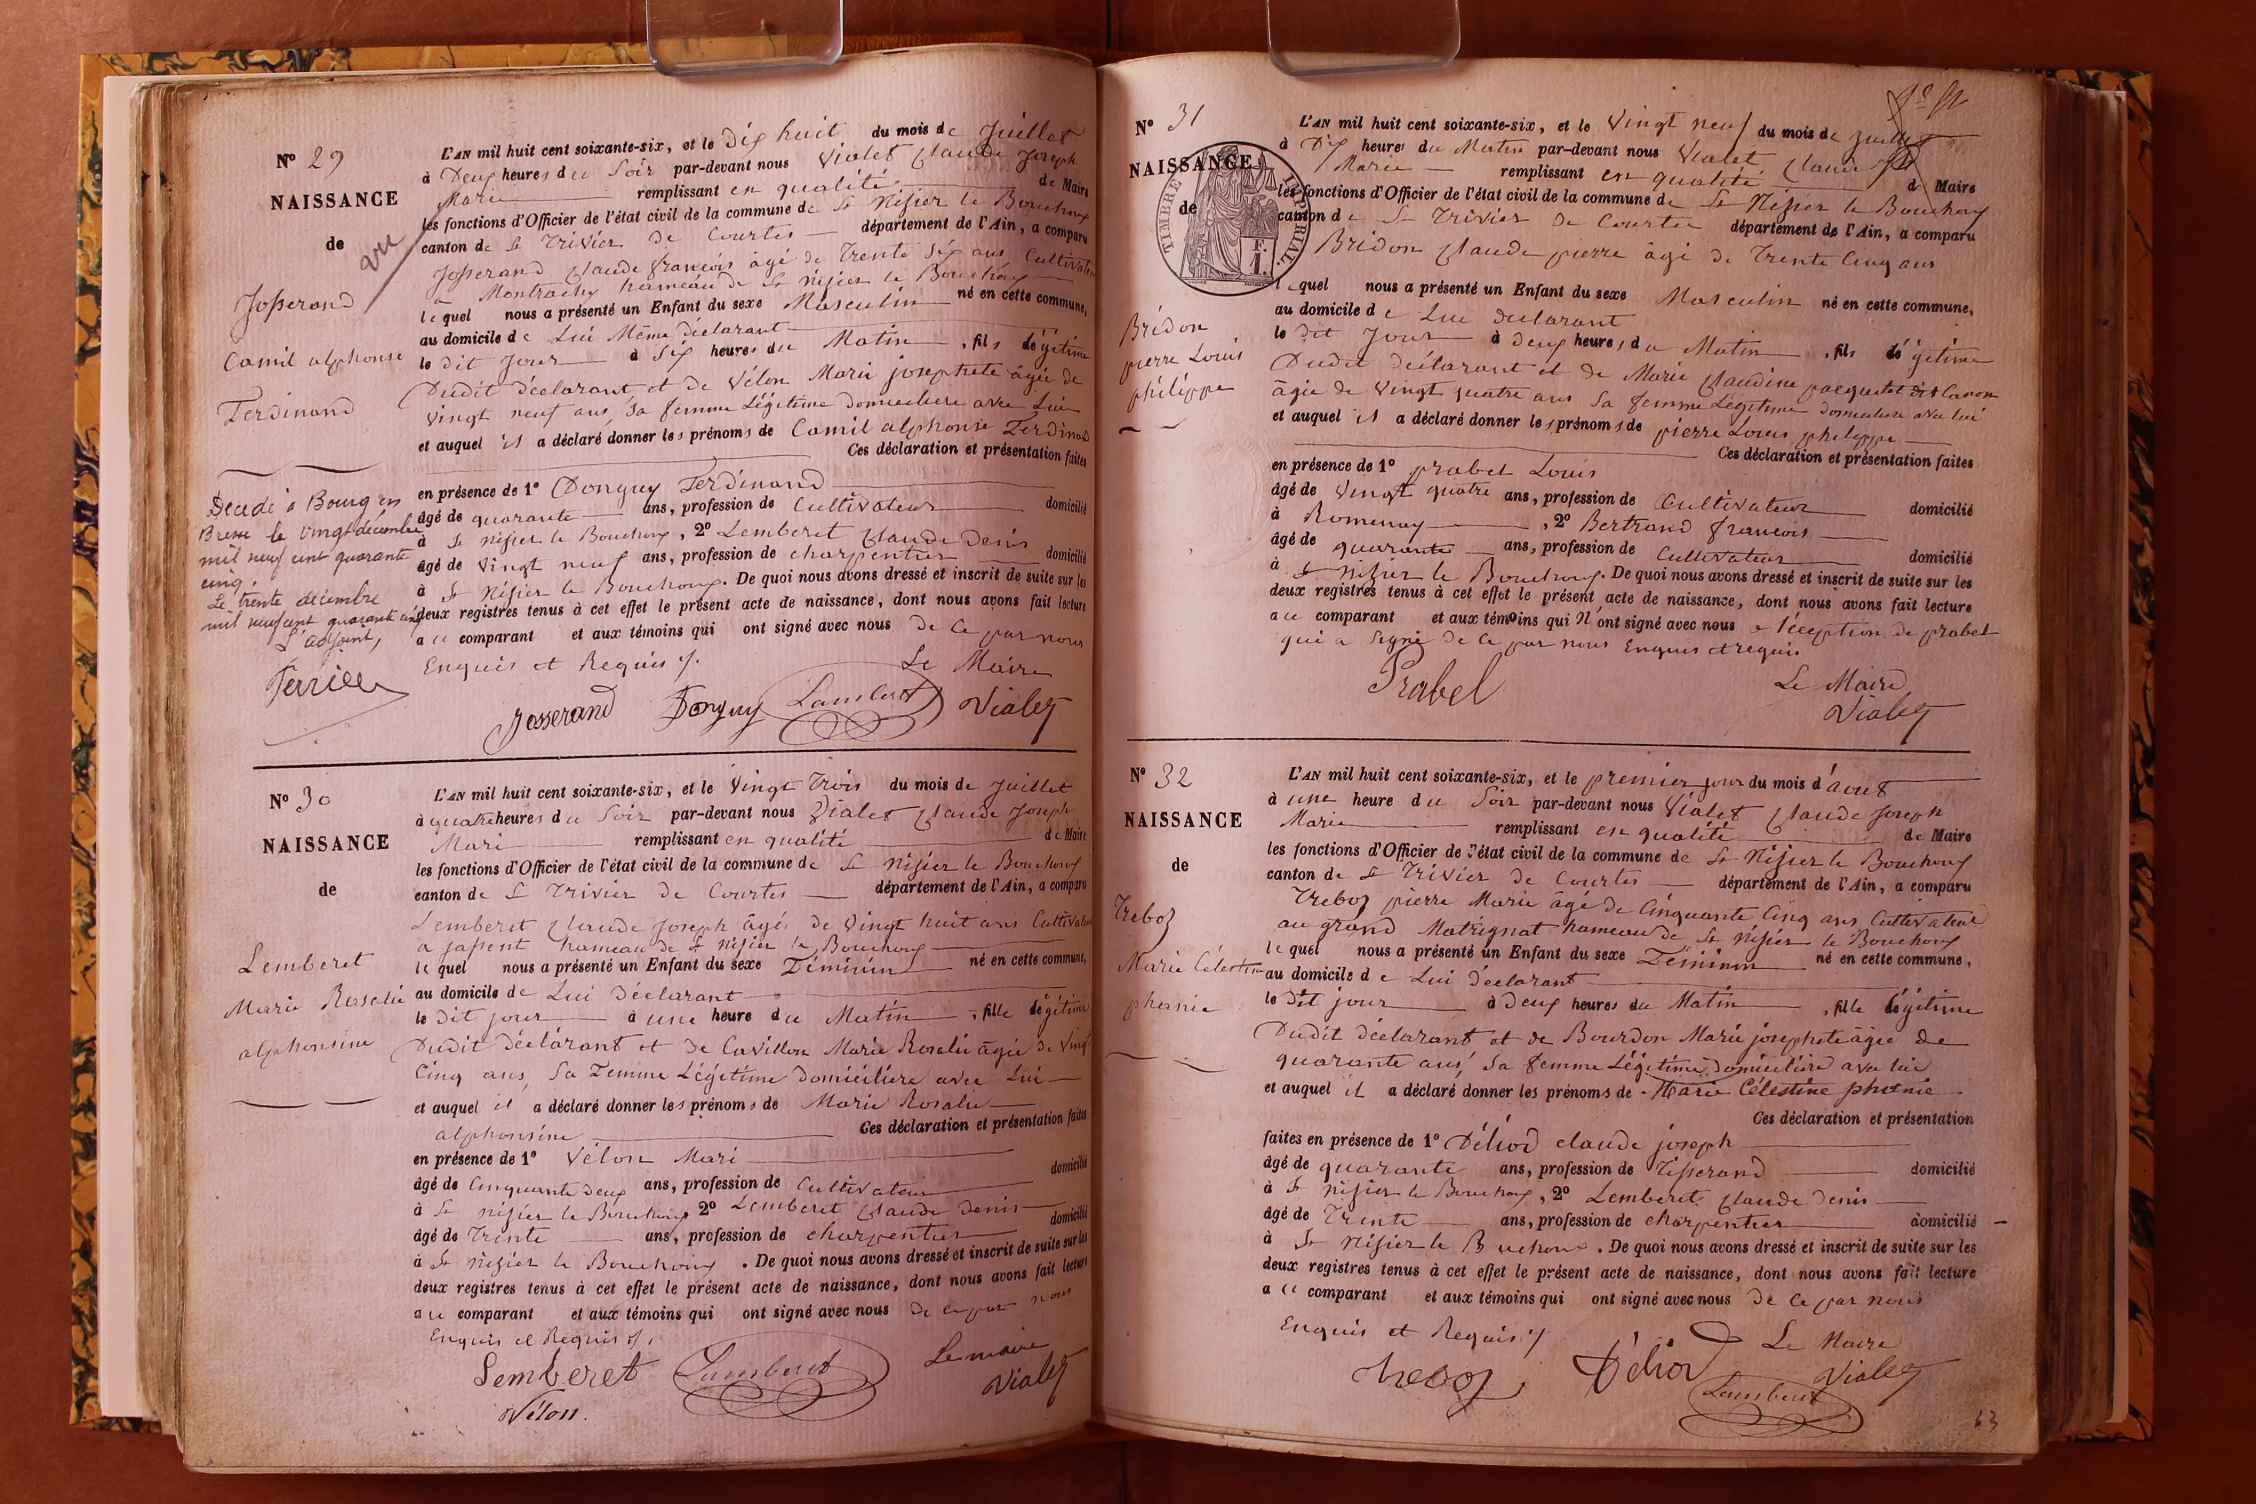 N° 29
NAISSANCE
de
vu
Josserand
Camil alphonse
Ferdinand
Décédé à Bourg en
Bresse le vingt décembre
mil neuf cent quarante
cinq.
Le trente décembre
mil neuf cent quarante cinq
L'adjoint,
L'AN mil huit cent soixante-six, et le Dix huit du mois de Juillet
à Deux heures du Soir par-devant nous Vialet Claude Joseph
Marie remplissant en qualité de Maire
les fonctions d'Officier de l'état civil de la commune de St Nizier le Bouchoux
canton de St Trivier de Courtes département de l'Ain, a comparu
Josserand Claude françois âgé de Trente Six ans Cultivateur
a Montrachy hameau de St Nizier le Bouchoux
le quel nous a présenté un Enfant du sexe Masculin né en cette commune,
au domicile de Lui Même déclarant
le dit Jour à Six heures du Matin, fils légitime
Dudit déclarant et de Vélon Marie josephete âgée de
vingt neuf ans, Sa femme Légitime domiciliere avec Lui
et auquel il a déclaré donner les prénoms de Camil alphonse Ferdinand
Ces déclaration et présentation faites
en présence de 1° Donguy Ferdinand
âgé de quarante ans, profession de Cultivateur domicilié
à St Nizier le Bouchoux, 2° Lemberet Claude Denis
âgé de Vingt neuf ans, profession de charpentier domicilié
à St Nizier le Bouchoux. De quoi nous avons dressé et inscrit de suite sur les
deux registres tenus à cet effet le présent acte de naissance, dont nous avons fait lecture
a ce comparant et aux témoins qui ont signé avec nous de ce par nous
Enquis et Requis ./.
Le Maire
Josserand Donguy Lemberet Vialet
N° 30
NAISSANCE
de
Lemberet
Marie Rosalie
alphonsine
L'AN mil huit cent soixante-six, et le Vingt Trois du mois de Juillet
à quatre heures du Soir par-devant nous Vialet Claude Joseph
Marie remplissant en qualité de Maire
les fonctions d'Officier de l'état civil de la commune de St Nizier le Bouchoux
canton de St Trivier de Courtes département de l'Ain, a comparu
Lemberet Claude Joseph âgé de Vingt huit ans Cultivateur
a hameau de St Nizier le Bouchoux
le quel nous a présenté un Enfant du sexe Féminin né en cette commune,
au domicile de Lui Déclarant
le Dit jour à une heure du Matin, fille légitime
Dudit Déclarant et de Cavillon Marie Rosalie âgée de Vingt
Cinq ans, Sa Femme Légitime Domiciliere avec Lui
et auquel il a déclaré donner les prénoms de Marie Rosalie
alphonsine Ces déclaration et présentation faites
en présence de 1° Vélon Marie
âgé de Cinquante deux ans, profession de Cultivateur domicilié
à St Nizier le Bouchoux 2° Lemberet Claude Denis
âgé de Trente ans, profession de charpentier domicilié
à St Nizier le Bouchoux. De quoi nous avons dressé et inscrit de suite sur les
deux registres tenus à cet effet le présent acte de naissance, dont nous avons fait lecture
a ce comparant et aux témoins qui ont signé avec nous de ce par nous
Enquis et Requis ./.
Lemberet Lemberet Le maire
Vélon. Vialet
N° 31
NAISSANCE
de
TIMBRE IMPÉRIAL
F.
1.
Bridon
pierre Louis
philippe
L'AN mil huit cent soixante-six, et le Vingt neuf du mois de Juillet
à Dix heures du Matin par-devant nous Vialet Claude
Marie remplissant en qualité de Maire
les fonctions d'Officier de l'état civil de la commune de St Nizier le Bouchoux
canton de St Trivier de Courtes département de l'Ain, a comparu
Bridon Claude pierre âgé de Trente Cinq ans
le quel nous a présenté un Enfant du sexe Masculin né en cette commune,
au domicile de Lui declarant
le Dit Jour à Deux heures du Matin, fils légitime
Dudit déclarant et de Marie Claudine pacquelet dit
âgée de Vingt quatre ans Sa femme Légitime domiciliere avec lui
et auquel il a déclaré donner les prénoms de pierre Louis philippe
Ces déclaration et présentation faites
en présence de 1° prabel Louis
âgé de Vingt quatre ans, profession de Cultivateur domicilié
à Romenay, 2° Bertrand francois
âgé de quarante ans, profession de Cultivateur domicilié
à St Nizier le Bouchoux. De quoi nous avons dressé et inscrit de suite sur les
deux registres tenus à cet effet le présent acte de naissance, dont nous avons fait lecture
a ce comparant et aux témoins qui N'ont signé avec nous a l'éxeption de prabel
qui a Signé de ce par nous Enquis et requis
Prabel Le Maire
Vialet
N° 32
NAISSANCE
de
Treboz
Marie Célestine
phœnie
L'AN mil huit cent soixante-six, et le premier jour du mois d'août
à une heure du Soir par-devant nous Vialet Claude Joseph
Marie remplissant en qualité de Maire
les fonctions d'Officier de l'état civil de la commune de St Nizier le Bouchoux
canton de St Trivier de Courtes département de l'Ain, a comparu
Treboz pierre Marie âgé de Cinquante Cinq ans Cultivateur
au grand Matrignat hameau de St Nizier le Bouchoux
le quel nous a présenté un Enfant du sexe Féminin né en cette commune,
au domicile de Lui déclarant
le Dit jour à Deux heures du Matin, fille légitime
Dudit déclarant et de Bourdon Marie josephete âgée de
quarante ans, Sa femme Légitime, domiciliere avec lui
et auquel il a déclaré donner les prénoms de Marie Célestine phœnie
Ces déclaration et présentation
faites en présence de 1° Déliod claude joseph
âgé de quarante ans, profession de Tisserand domicilié
à St Nizier le Bouchoux, 2° Lemberet Claude Denis
âgé de Trente ans, profession de charpentier domicilié
à St Nizier le Buchoux. De quoi nous avons dressé et inscrit de suite sur les
deux registres tenus à cet effet le présent acte de naissance, dont nous avons fait lecture
a ce comparant et aux témoins qui ont signé avec nous de ce par nous
Enquis et Requis ./.
Le Maire
Treboz Déliod Vialet
Lemberet
63